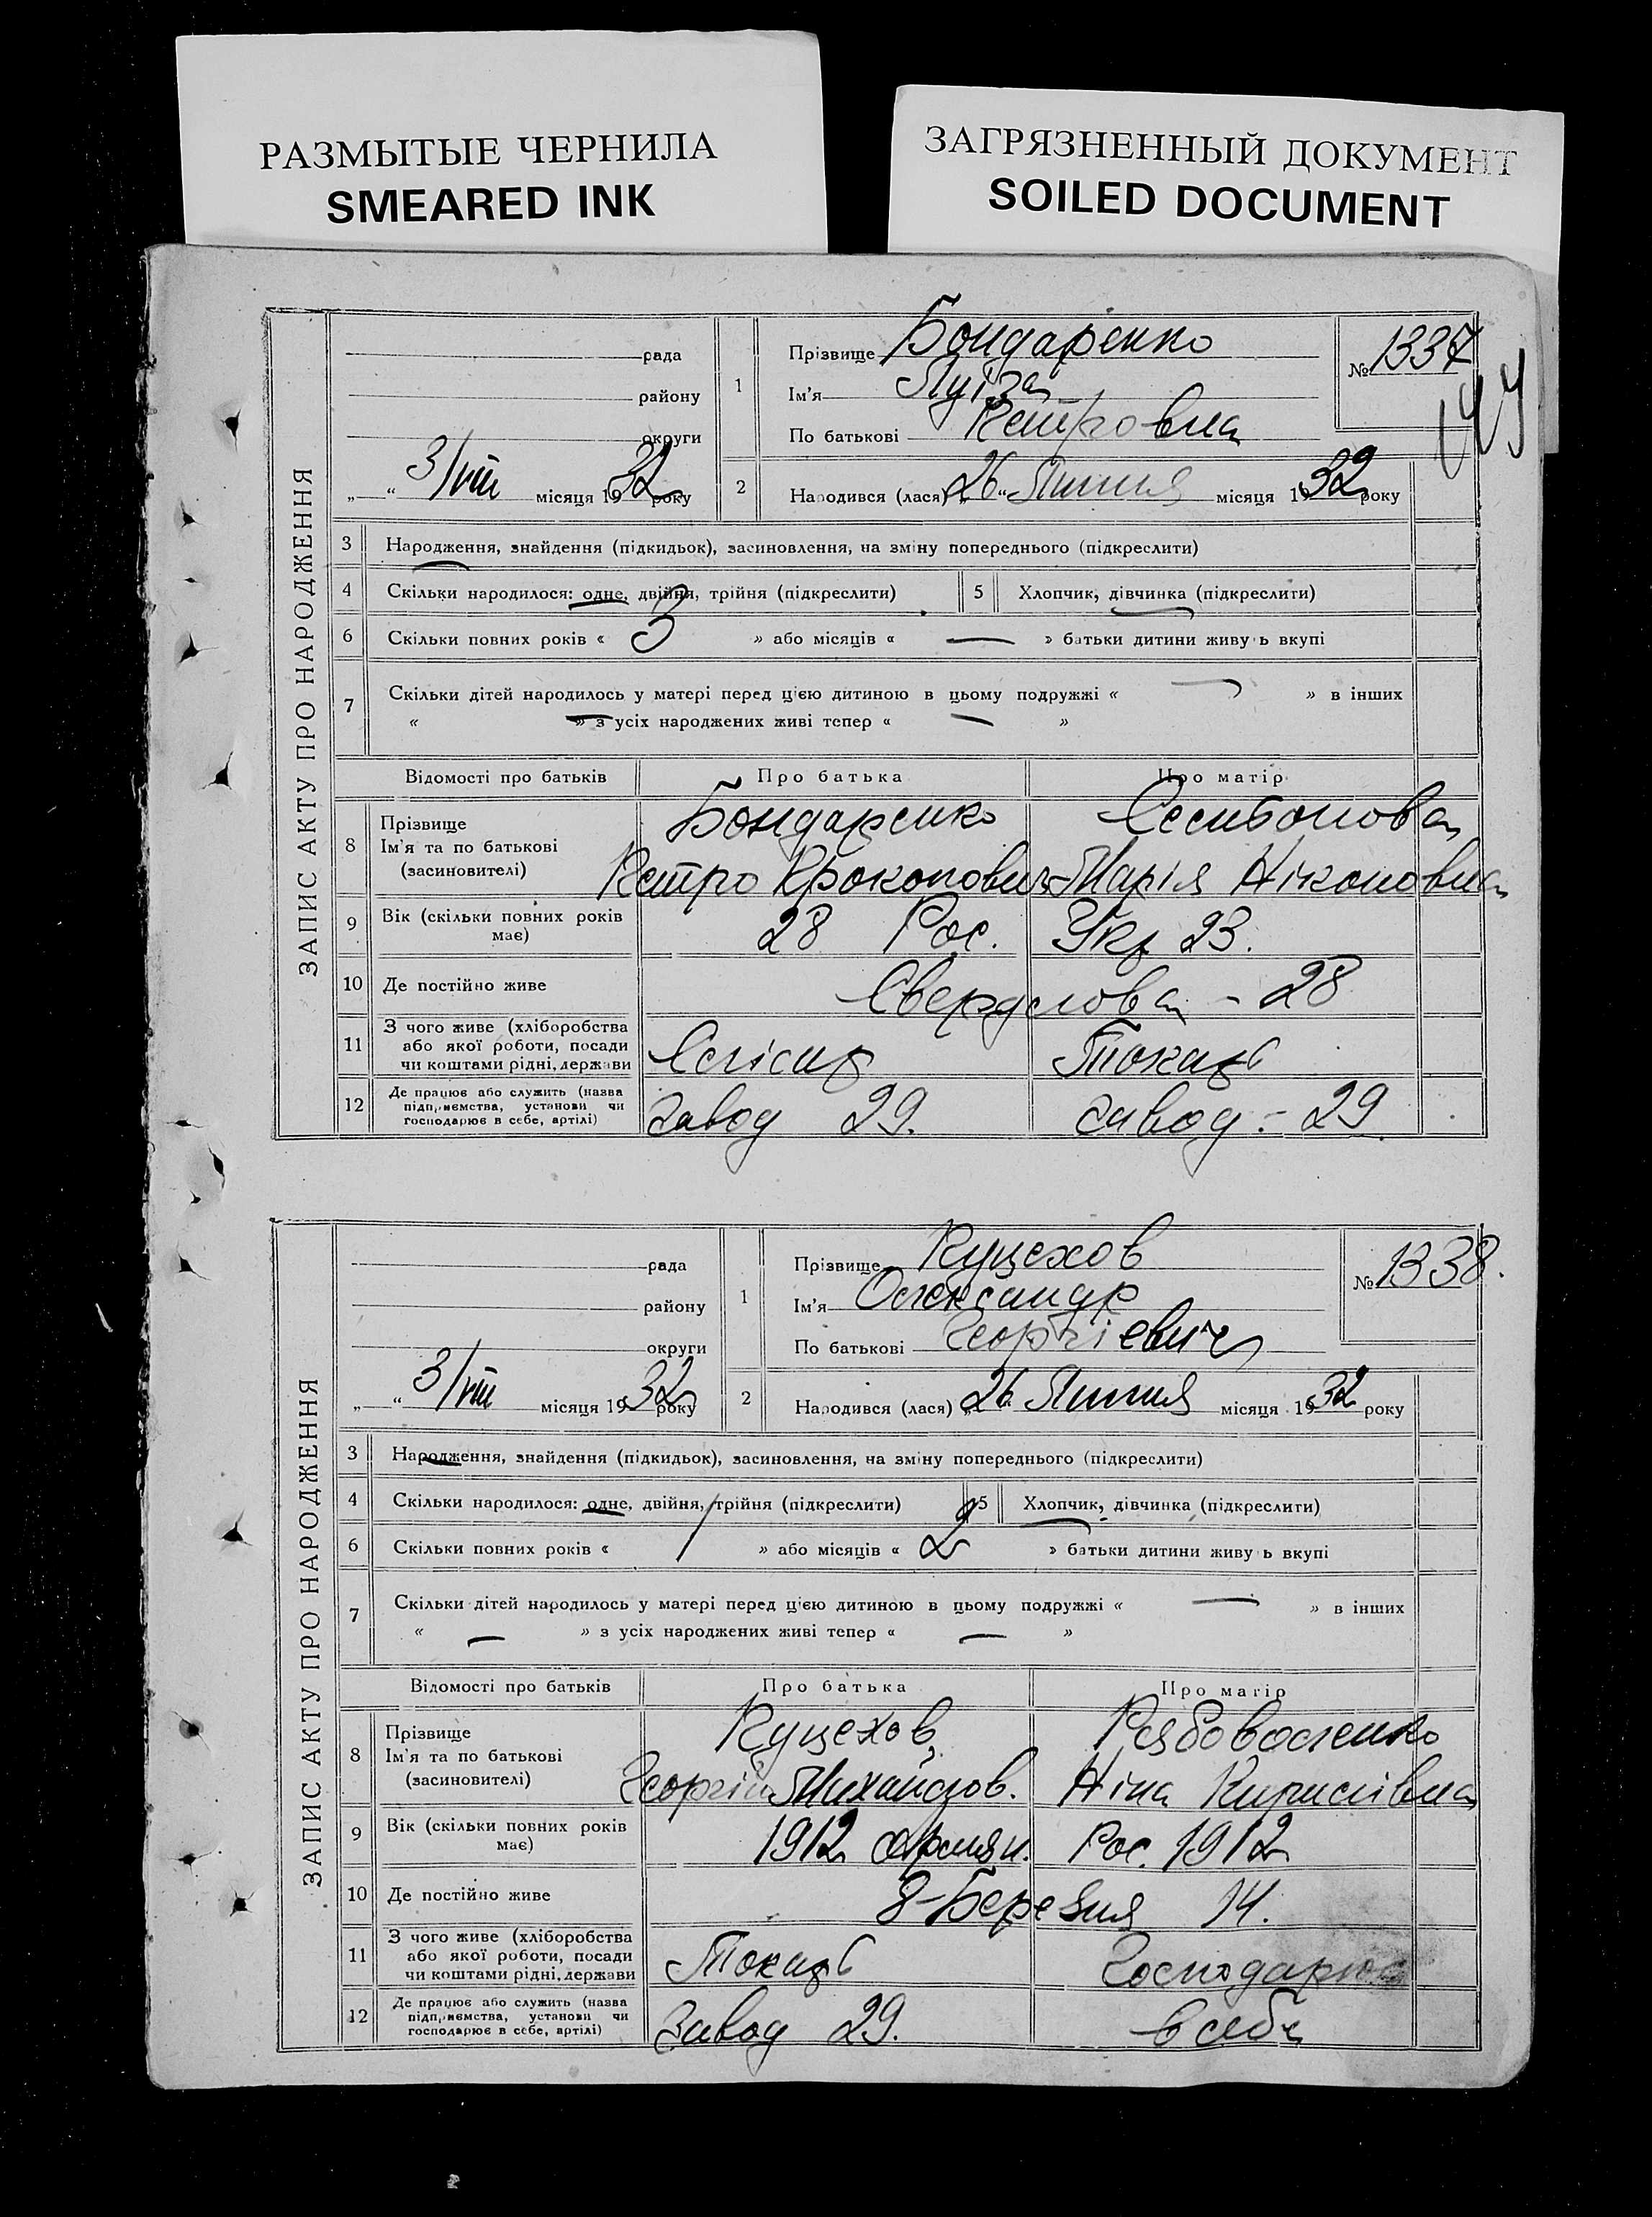 РАЗМЫТЫЕ ЧЕРНИЛА
SMEARED INK
ЗАГРЯЗНЕННЫЙ ДОКУМЕНТ
SOILED DOCUMENT
ЗАПИС АКТУ ПРО НАРОДЖЕННЯ
рада
району
округи
„ “ 3/VIII місяця 1932 року
1
Прізвище Бондаренко
Ім'я Луїза
По батькові Петровна
№ 1337
149
2 Народився (лася) „26“ Липня місяця 1932 року
3 Народження, знайдення (підкидьок), засиновлення, на зміну попереднього (підкреслити)
4 Скільки народилося: одне, двійня, трійня (підкреслити) 5 Хлопчик, дівчинка (підкреслити)
6 Скільки повних років « 3 » або місяців « — » батьки дитини живуть вкупі
7 Скільки дітей народилось у матері перед цією дитиною в цьому подружжі « — » в інших
« — » з усіх народжених живі тепер « — »
Відомості про батьків Про батька Про матір
8 Прізвище Бондаренко
Ім'я та по батькові Петро Прокопович Марія Ніконовна
(засиновителі)
9 Вік (скільки повних років має) 28 Рос. Укр 23.
10 Де постійно живе Свердлова - 28
11 З чого живе (хліборобства або якої роботи, посади чи коштами рідні, держави Слісар Токарь
12 Де працює або служить (назва підприємства, установи чи господарює в себе, артілі) завод 29. завод - 29
ЗАПИС АКТУ ПРО НАРОДЖЕННЯ
рада
району
округи
„ “ 3/VIII місяця 1932 року
1
Прізвище Куцехов
Ім'я Олександр
По батькові Георгієвич
№ 1338.
2 Народився (лася) „26 Липня місяця 1932 року
3 Народження, знайдення (підкидьок), засиновлення, на зміну попереднього (підкреслити)
4 Скільки народилося: одне, двійня, трійня (підкреслити) 5 Хлопчик, дівчинка (підкреслити)
6 Скільки повних років « / » або місяців « 2 » батьки дитини живуть вкупі
7 Скільки дітей народилось у матері перед цією дитиною в цьому подружжі « — » в інших
« — » з усіх народжених живі тепер « — »
Відомості про батьків Про батька Про матір
8 Прізвище Куцехов Рябоволенко
Ім'я та по батькові Георгій Михайлов. Ніна Кирилівна
(засиновителі)
9 Вік (скільки повних років має) 1912 Армян. Рос. 1912
10 Де постійно живе 8-Березня 14.
11 З чого живе (хліборобства або якої роботи, посади чи коштами рідні, держави Токарь Господарює
12 Де працює або служить (назва підприємства, установи чи господарює в себе, артілі) Завод 29. в себе